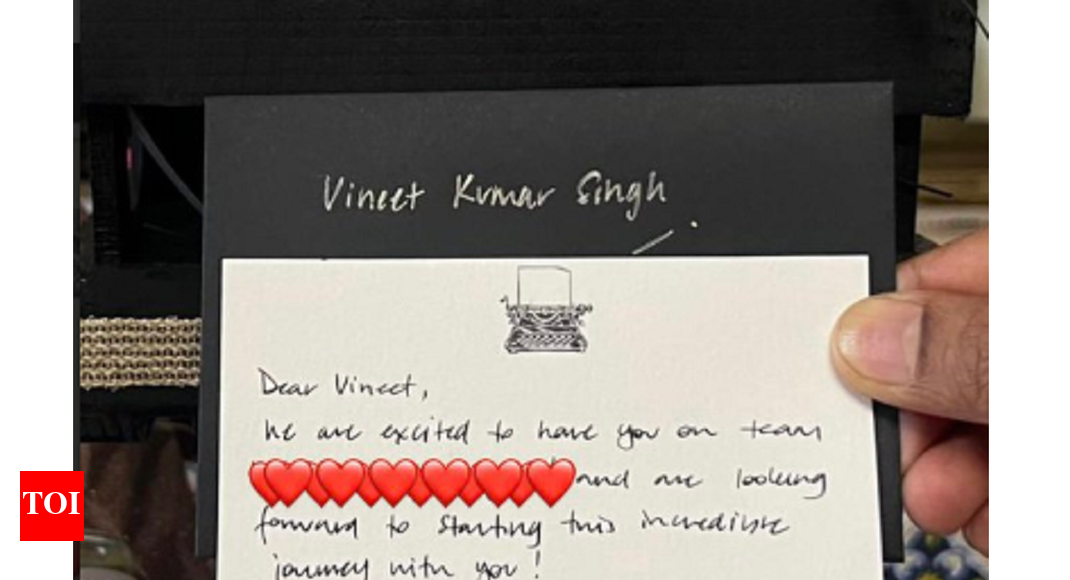 Vineet Kumar Singh
Dear Vineet,
We are excited to have you on team
and are looking
forward to starting this incredible
journey with you!
TOI